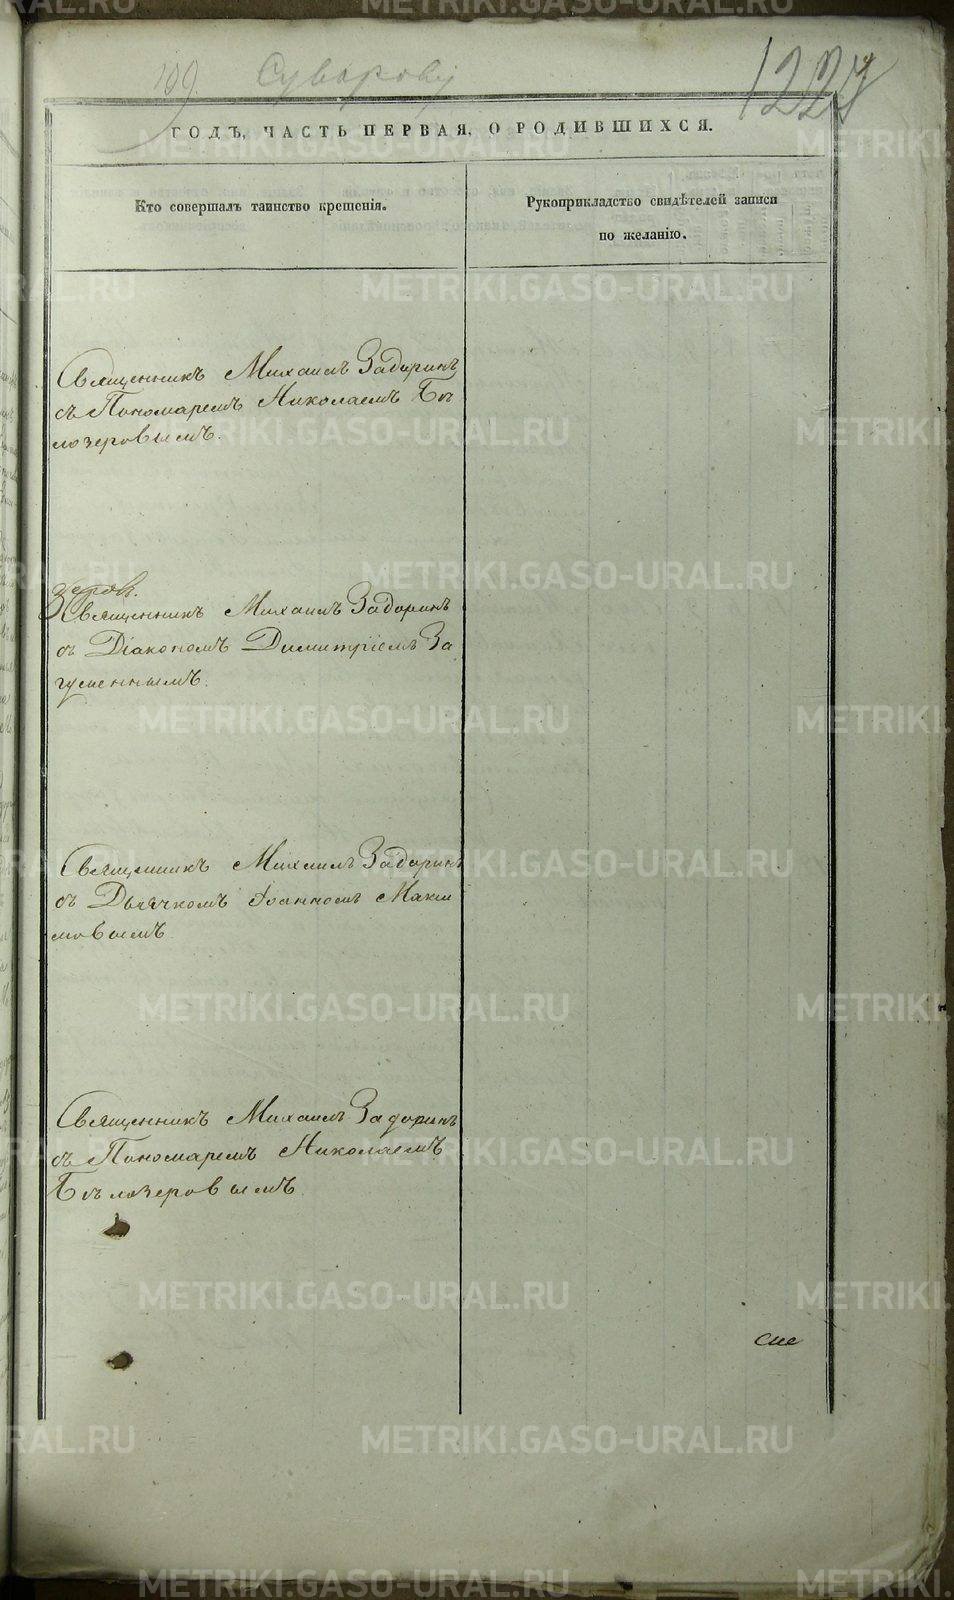 199. Суворову
ГОДЪ, ЧАСТЬ ПЕРВАЯ, О РОДИВШИХСЯ.
Кто совершалъ таинство крещенія.
Рукоприкладство свидѣтелей записи
по желанію.
Священникъ Михаилъ Задоринъ
съ Пономаремъ Николаемъ Бѣ
лозеровымъ.
Священникъ Михаилъ Задоринъ
съ Діакономъ Димитріемъ За
гуменнымъ.
Священникъ Михаилъ Задоринъ
съ Дьячкомъ Іоанномъ Макси
мовымъ
Священникъ Михаилъ Задоринъ
съ Пономаремъ Николаемъ
Бѣлозеровымъ.
сие
METRIKI.GASO-URAL.RU